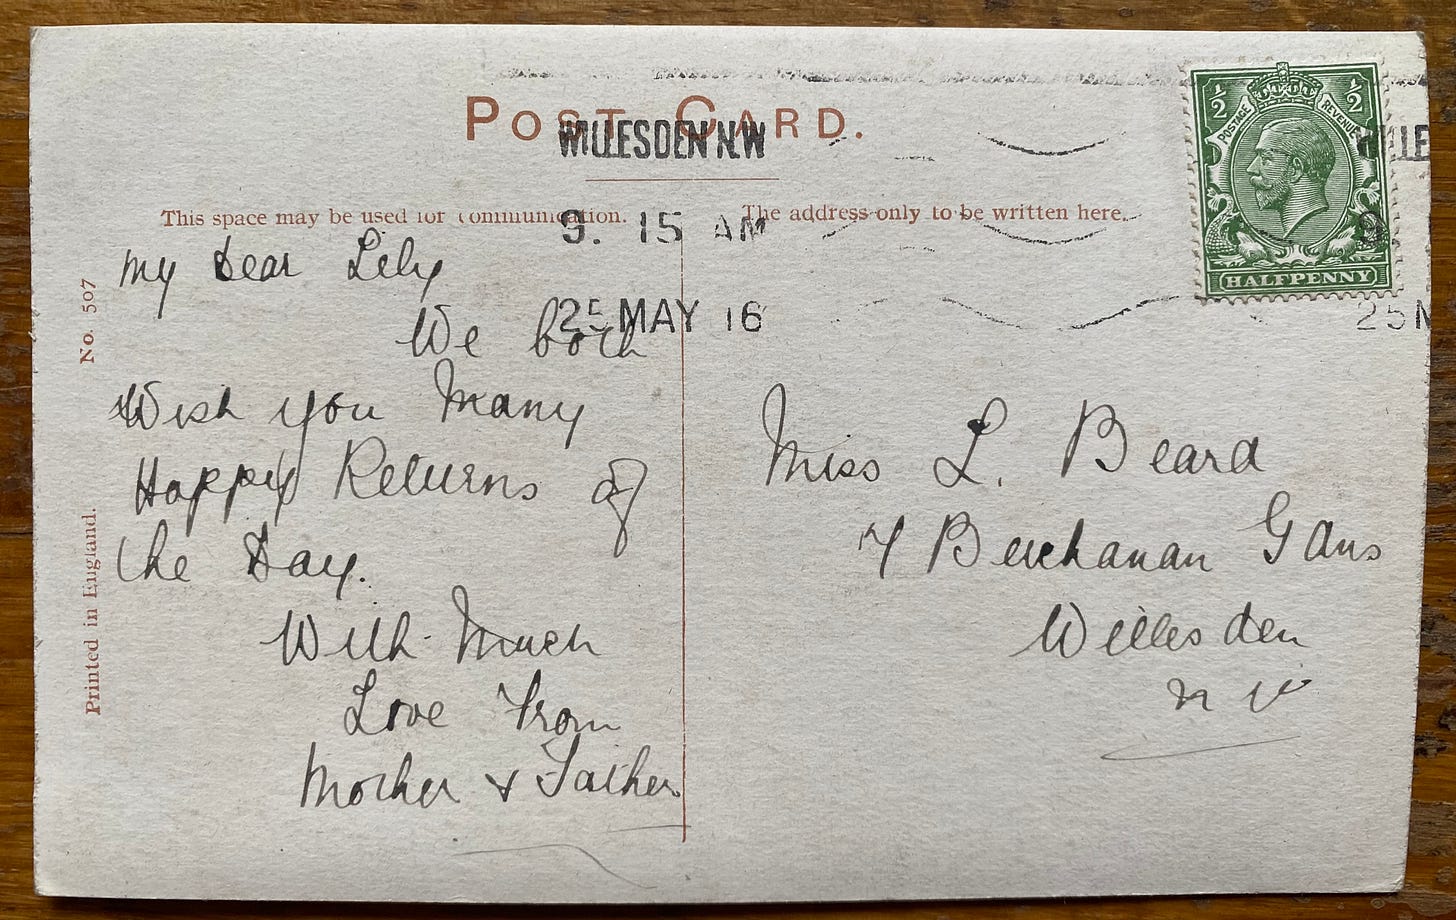 POST CARD.
WILLESDEN N.W
9. 15 AM
25 MAY 16
This space may be used for communication.
The address only to be written here.
½ ½
POSTAGE REVENUE
HALFPENNY
No. 507
Printed in England.
My Dear Lily
We both
Wish you Many
Happy Returns of
the Day.
With Much
Love From
Mother & Father
Miss L. Beard
7 Buchanan Gdns
Willesden
N W
LLE
9.
25 M